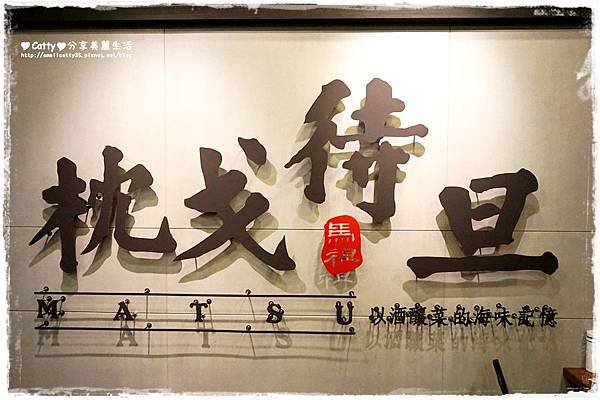 ♥Catty♥分享美麗生活
http://smallcatty35.pixnet.net/blog
枕戈待旦
馬祖
MATSU
以酒釀菜的海味記憶